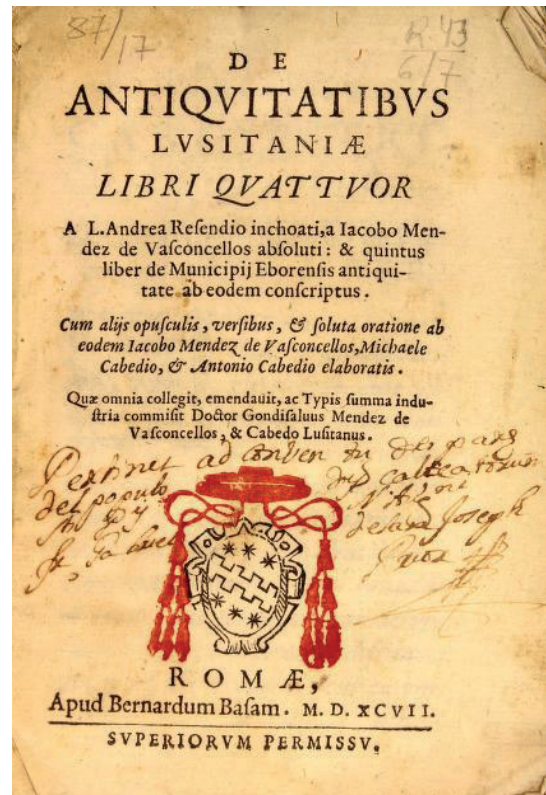 87/17
R. 43
6/7
D E
ANTIQVITATIBVS
LVSITANIÆ
LIBRI QVATTVOR
A L. Andrea Reſendio inchoati, a Iacobo Men-
dez de Vaſconcellos abſoluti: & quintus
liber de Municipij Eborenſis antiqui-
tate ab eodem conſcriptus.
Cum alijs opuſculis, verſibus, & ſoluta oratione ab
eodem Iacobo Mendez de Vaſconcellos, Michaele
Cabedio, & Antonio Cabedio elaboratis.
Quæ omnia collegit, emendauit, ac Typis ſumma indu-
ſtria commiſit Doctor Gondiſaluus Mendez de
Vaſconcellos, & Cabedo Luſitanus.
Pertinet ad
del populo
Joseph
R O M Æ,
Apud Bernardum Baſam. M. D. XCVII.
SVPERIORVM PERMISSV.